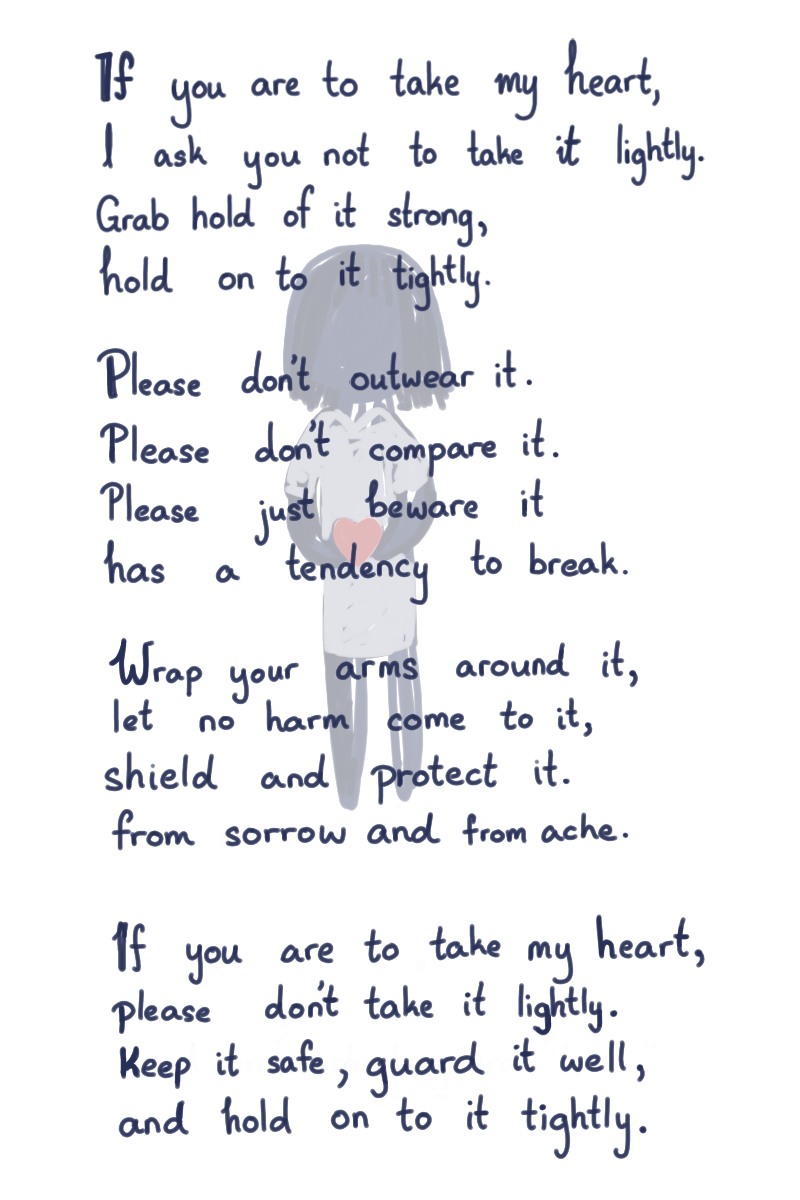 If you are to take my heart,
I ask you not to take it lightly.
Grab hold of it strong,
hold on to it tightly.
Please don't outwear it.
Please don't compare it.
Please just beware it
has a tendency to break.
Wrap your arms around it,
let no harm come to it,
shield and protect it.
from sorrow and from ache.
If you are to take my heart,
please don't take it lightly.
Keep it safe, guard it well,
and hold on to it tightly.